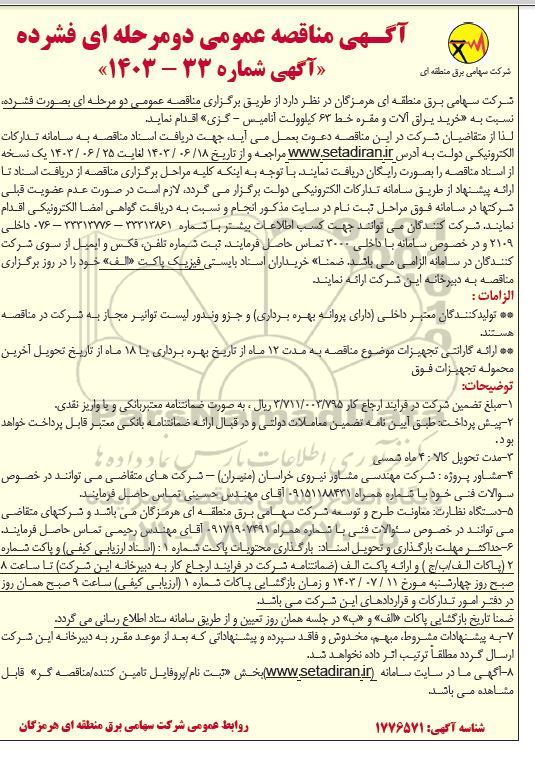 آگهی مناقصه عمومی دومرحله ای فشرده
«آگهی شماره ۳۳ – ۱۴۰۳»
شرکت سهامی برق منطقه ای
شرکت سهامی برق منطقه ای هرمزگان در نظر دارد از طریق برگزاری مناقصه عمومی دو مرحله ای بصورت فشرده،
نسبت به «خرید یراق آلات و مقره خط ۶۳ کیلوولت آنامیس – گزی» اقدام نماید.
لذا از متقاضیان شرکت در این مناقصه دعوت بعمل می آید، جهت دریافت اسناد مناقصه به سامانه تدارکات
الکترونیکی دولت به آدرس www.setadiran.ir مراجعه و از تاریخ ۱۸/ ۰۶ / ۱۴۰۳ لغایت ۲۵ / ۰۶ / ۱۴۰۳ یک نسخه
از اسناد مناقصه را بصورت رایگان دریافت نمایند. با توجه به اینکه کلیه مراحل برگزاری مناقصه از دریافت اسناد تا
ارائه پیشنهاد از طریق سامانه تدارکات الکترونیکی دولت برگزار می گردد، لازم است در صورت عدم عضویت قبلی
شرکتها در سامانه فوق مراحل ثبت نام در سایت مذکور انجام و نسبت به دریافت گواهی امضا الکترونیکی اقدام
نمایند. شرکت کنندگان می توانند جهت کسب اطلاعات بیشتر با شماره ۳۳۳۱۳۸۶۱ – ۳۳۳۱۳۷۷۶ – ۰۷۶ داخلی
۲۱۰۹ و در خصوص سامانه با داخلی ۳۰۰۰ تماس حاصل فرمایند. ثبت شماره تلفن، فکس و ایمیل از سوی شرکت
کنندگان در سامانه الزامی می باشد. ضمنا" خریداران اسناد بایستی فیزیک پاکت «الف» خود را در روز برگزاری
مناقصه به دبیرخانه این شرکت ارائه نمایند.
الزامات :
** تولیدکنندگان معتبر داخلی (دارای پروانه بهره برداری) و جزو وندور لیست توانیر مجاز به شرکت در مناقصه
هستند.
** ارائه گارانتی تجهیزات موضوع مناقصه به مدت ۱۲ ماه از تاریخ بهره برداری یا ۱۸ ماه از تاریخ تحویل آخرین
محموله تجهیزات فوق
توضیحات:
۱–مبلغ تضمین شرکت در فرایند ارجاع کار ۳/۷۱۱/۰۰۳/۷۹۵ ریال ، به صورت ضمانتنامه معتبربانکی و یا واریز نقدی.
۲–پیش پرداخت: طبق آیین نامه تضمین معاملات دولتی و در قبال ارائه ضمانتنامه بانکی معتبر قابل پرداخت خواهد
بود.
۳–مدت تحویل کالا : ۴ ماه شمسی
۴–مشاور پروژه : شرکت مهندسی مشاور نیروی خراسان (منیران) – شرکت های متقاضی می توانند در خصوص
سوالات فنی خود با شماره همراه ۰۹۱۵۱۱۸۸۴۳۱ آقای مهندس حسینی تماس حاصل فرمایند.
۵–دستگاه نظارت: معاونت طرح و توسعه شرکت سهامی برق منطقه ای هرمزگان می باشد و شرکتهای متقاضی
می توانند در خصوص سئوالات فنی با شماره همراه ۰۹۱۷۱۹۰۷۴۹۱ آقای مهندس رحیمی تماس حاصل فرمایند.
۶–حداکثر مهلت بارگذاری و تحویل اسناد: بارگذاری محتویات پاکت شماره ۱ : (اسناد ارزیابی کیفی) و پاکت شماره
۲ (پاکات الف/ب/ج) و ارائه پاکت الف (ضمانتنامه شرکت در فرایند ارجاع کار به دبیرخانه این شرکت) تا ساعت ۸
صبح روز چهارشنبه مورخ ۱۱ / ۰۷ / ۱۴۰۳ و زمان بازگشایی پاکات شماره ۱ (ارزیابی کیفی) ساعت ۹ صبح همان روز
در دفتر امور تدارکات و قراردادهای این شرکت می باشد.
ضمنا تاریخ بازگشایی پاکات «الف» و «ب» در جلسه همان روز تعیین و از طریق سامانه ستاد اطلاع رسانی می گردد.
۷–به پیشنهادات مشروط، مبهم، مخدوش و فاقد سپرده و پیشنهاداتی که بعد از موعد مقرر به دبیرخانه این شرکت
ارسال گردد مطلقاً ترتیب اثر داده نخواهد شد.
۸–آگهی ما در سایت سامانه (www.setadiran.ir) بخش «ثبت نام/پروفایل تامین کننده/مناقصه گر» قابل
مشاهده می باشد.
شناسه آگهی: ۱۷۷۶۵۷۱
روابط عمومی شرکت سهامی برق منطقه ای هرمزگان